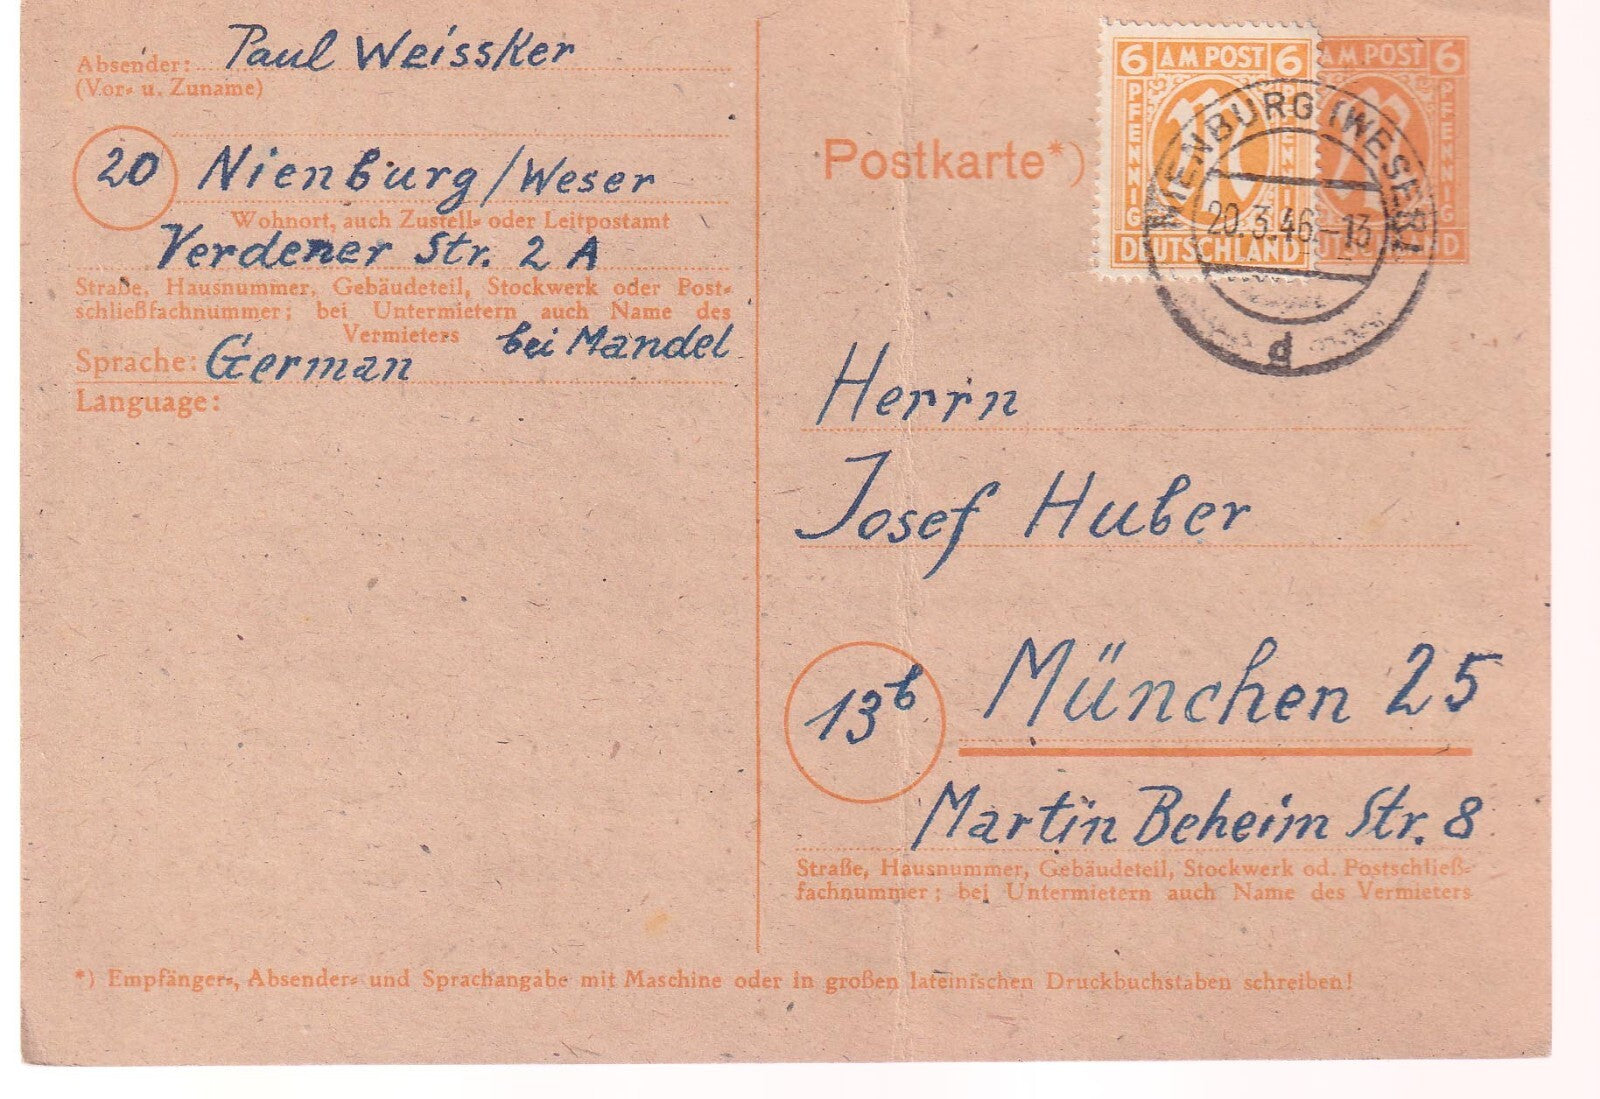 Absender: Paul Weissker
(Vor- u. Zuname)
20 Nienburg/Weser
Wohnort, auch Zustell- oder Leitpostamt
Verdener Str. 2 A
Straße, Hausnummer, Gebäudeteil, Stockwerk oder Post-
schließfachnummer; bei Untermietern auch Name des
Vermieters
bei Mandel
Sprache: German
Language:
Postkarte*)
6 AM POST 6
PFENNIG PFENNIG
DEUTSCHLAND
AM POST 6
PFENNIG
NIENBURG (WESER)
20.3.46.-13
d
Herrn
Josef Huber
13b München 25
Martin Beheim Str. 8
Straße, Hausnummer, Gebäudeteil, Stockwerk od. Postschließ-
fachnummer; bei Untermietern auch Name des Vermieters
*) Empfänger-, Absender- und Sprachangabe mit Maschine oder in großen lateinischen Druckbuchstaben schreiben!